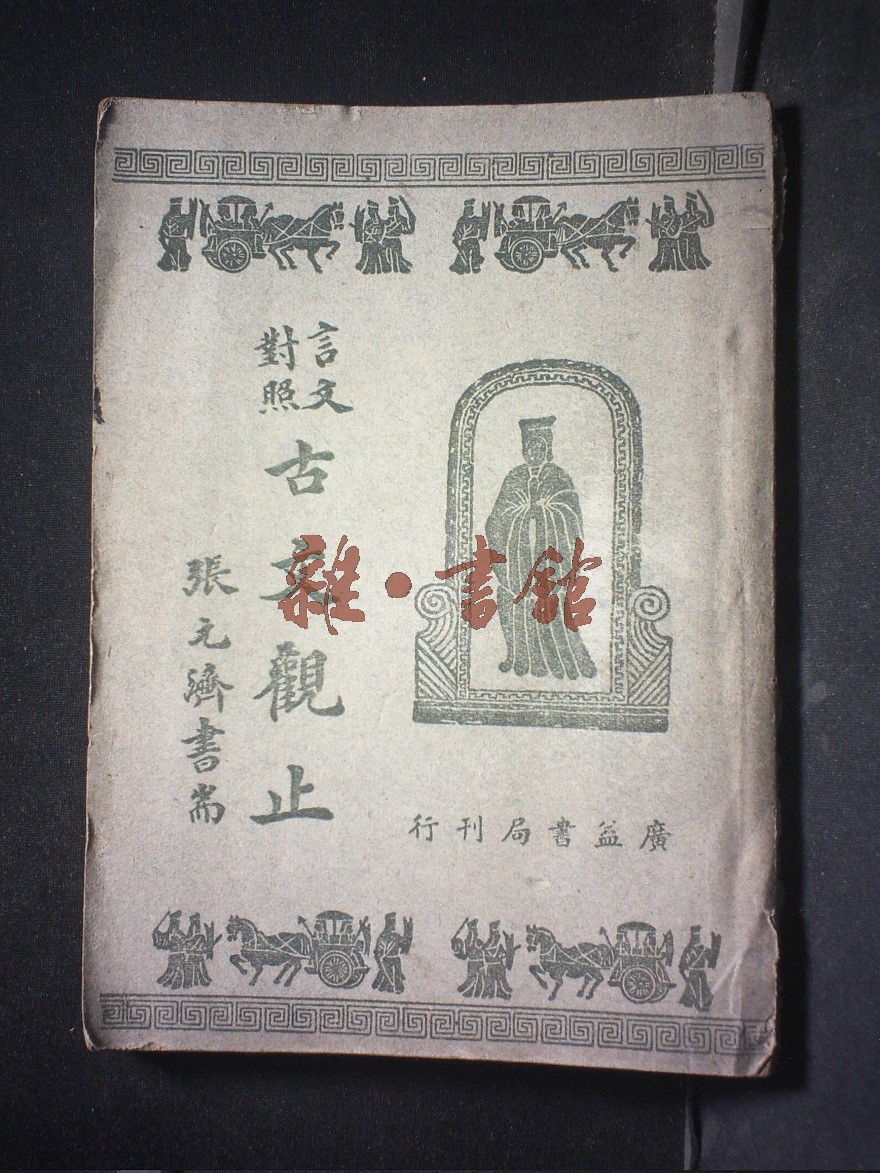 言文
對照
古文觀止
張元濟書耑
廣益書局刊行
雜·書舘